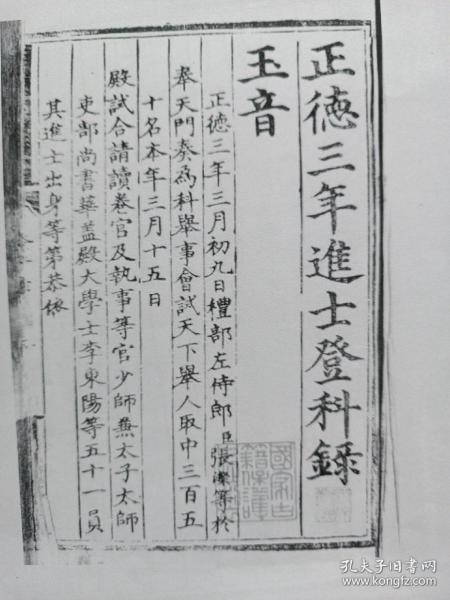 正德三年進士登科錄
玉音
正德三年三月初九日禮部左侍郎臣張澯等於
奉天門奏為科舉事會試天下舉人取中三百五
十名本年三月十五日
殿試合請讀卷官及執事等官少師兼太子太師
吏部尚書華蓋殿大學士李東陽等五十一員
其進士出身等第恭依
孔夫子旧书网
www.kongfz.com